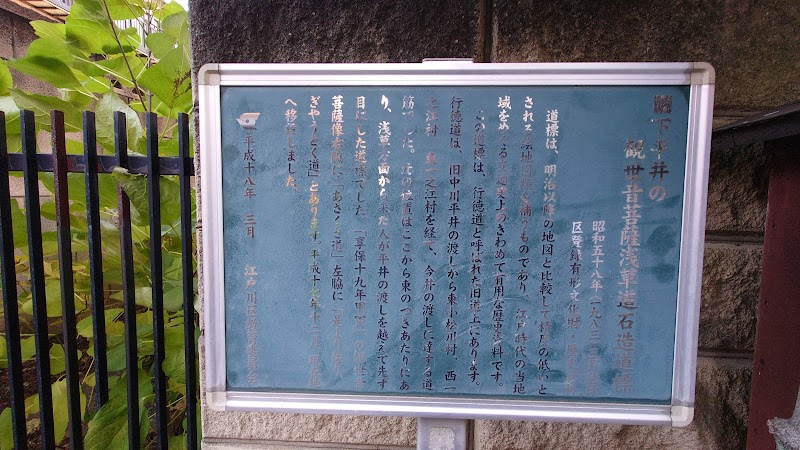 下平井の
観世音菩薩浅草道石造道標
昭和五十八年(一九八三)
区登録有形文化財・
道標は、明治以降の地図と比較して精度の低いと
される 地図 を補うものであり 江戸時代の当地
域をめ る 史上のきわめて有用な歴史資料です。
この道標は、行徳道と呼ばれた旧道上にあります。
行徳道は、旧中川平井の渡しから東小松川村、西一
之江村 東一之江村を経て、今井の渡しに達する道
筋でした。元の位置はここから東のつきあたりにあ
り、浅草方面から来た人が平井の渡しを越えて先ず
目にした道標でした。「享保十九年甲寅
菩薩像 脇に「あさくさ道」左脇に
ぎやうとく道」とあります。平成十七年十二月、現在地
へ移 しました。
平成十八年 三月 江戸川区教育委員会